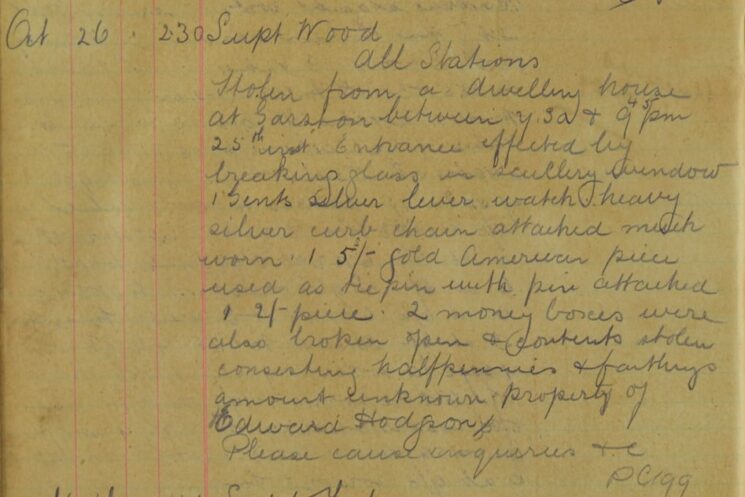 Oct 26 . 2.30 Supt Wood
All Stations
Stolen from a dwelling house
at Garston between 7.30 & 9 45 pm
25th inst Entrance effected by
breaking glass in scullery window
1 Gents silver lever watch heavy
silver curb chain attached much
worn. 1 5/- gold American piece
used as tiepin with pin attached
1 2/- piece. 2 money boxes were
also broken open & contents stolen
consisting halfpennies & farthings
amount unknown property of
Edward Hodgson
Please cause enquiries &c
PC199